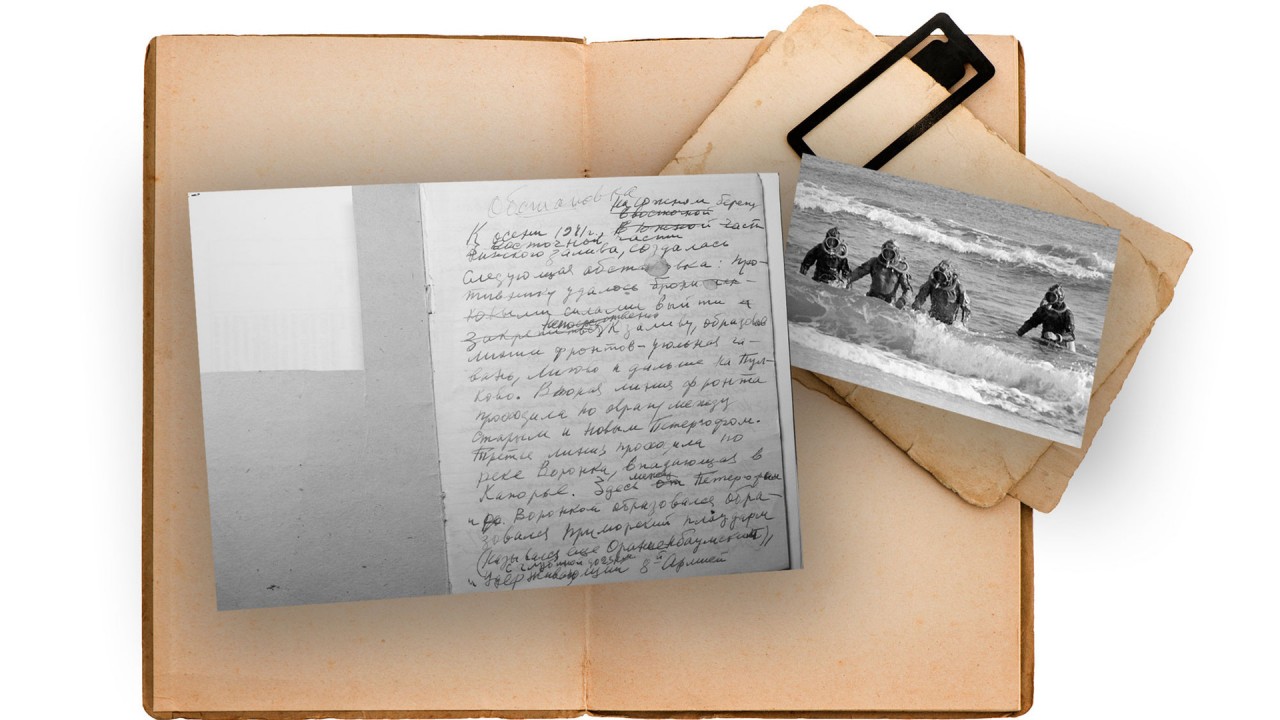 Обстановка
На южном берегу
К осени 1941г. в восточной
в Южной части
восточной части
Финского залива, создалась
следующая обстановка: про-
тивнику удалось
крупными силами выйти и
закрепиться к заливу, образовав
линии фронтов – угольная га-
вань, Лигово и дальше на Пул-
ково. Вторая линия фронта
проходила по оврагу между
старым и новым Петергофом.
Третья линия проходила по
реке Воронка, впадающая в
Капорье. Здесь между от Петергофом
и др. Воронкой образовался обра-
зовался Приморский плацдарм
(назывался еще Ораниенбаумский),
удерживающий 8й Армией